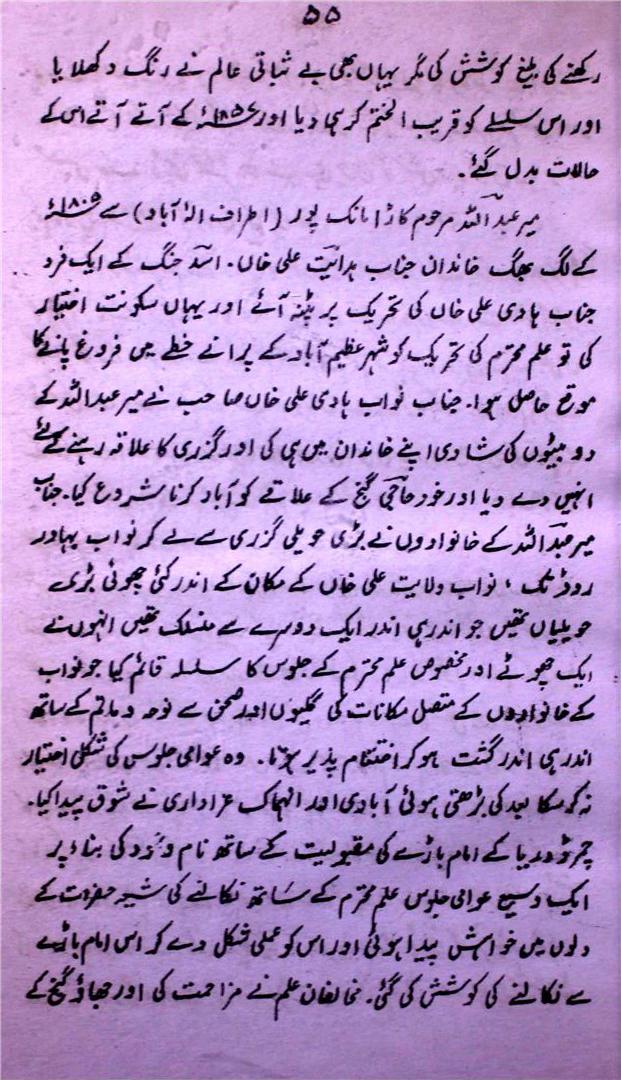 ۵۵
رکھنے کی بلیغ کوشش کی مگر یہاں بھی بے ثباتی عالم نے رنگ دکھلایا
اور اس سلسلے کو قریب الختم کر ہی دیا اور ۱۸۵۷ء کے آتے آتے اس کے
حالات بدل گئے۔
میر عبداللہ مرحوم کاڑا مانک پور (اطراف الہ آباد) سے ۱۸۰۵ء
کے لگ بھگ خاندان جناب ہدائیت علی خاں۔ اسد جنگ کے ایک فرد
جناب ہادی علی خاں کی تحریک پر پٹنہ آئے اور یہاں سکونت اختیار
کی تو علم محترم کی تحریک کو شہر عظیم آباد کے پرانے خطے میں فروغ پانے کا
موقع حاصل ہوا۔ جناب نواب ہادی علی خاں صاحب نے میر عبداللہ کے
دو بیٹوں کی شادی اپنے خاندان میں ہی کی اور گزری کا علاقہ رہنے کے لئے
انہیں دے دیا اور خود حاجی گنج کے علاقے کو آباد کرنا شروع کیا۔ جناب
میر عبداللہ کے خانوادوں نے بڑی حویلی گزری سے لے کر نواب بہادر
روڈ تک، نواب ولایت علی خاں کے مکان کے اندر کئی چھوٹی بڑی
حویلیاں تھیں جو اندر ہی اندر ایک دوسرے سے منسلک تھیں انہوں نے
ایک چھوٹے اور مخصوص علم محترم کے جلوس کا سلسلہ قائم کیا جو نواب
کے خانوادوں کے متصل مکانات کی گلیوں اور صحن سے نوحہ و ماتم کے ساتھ
اندر ہی اندر گشت ہو کر اختتام پذیر ہوتا۔ وہ عوامی جلوس کی شکل اختیار
نہ کر سکا بعد کی بڑھتی ہوئی آبادی اور انہماک عزاداری نے شوق پیدا کیا۔
چمڑوڈریا کے امام باڑے کی مقبولیت کے ساتھ نام و زد کی بناء پر
ایک وسیع عوامی جلوس علم محترم کے ساتھ نکالنے کی شیعہ حضرات کے
دلوں میں خواہش پیدا ہوئی اور اس کو عملی شکل دے کر اس امام باڑے
سے نکالنے کی کوشش کی گئی۔ مخالفان علم نے مزاحمت کی اور جھاؤ گنج کے